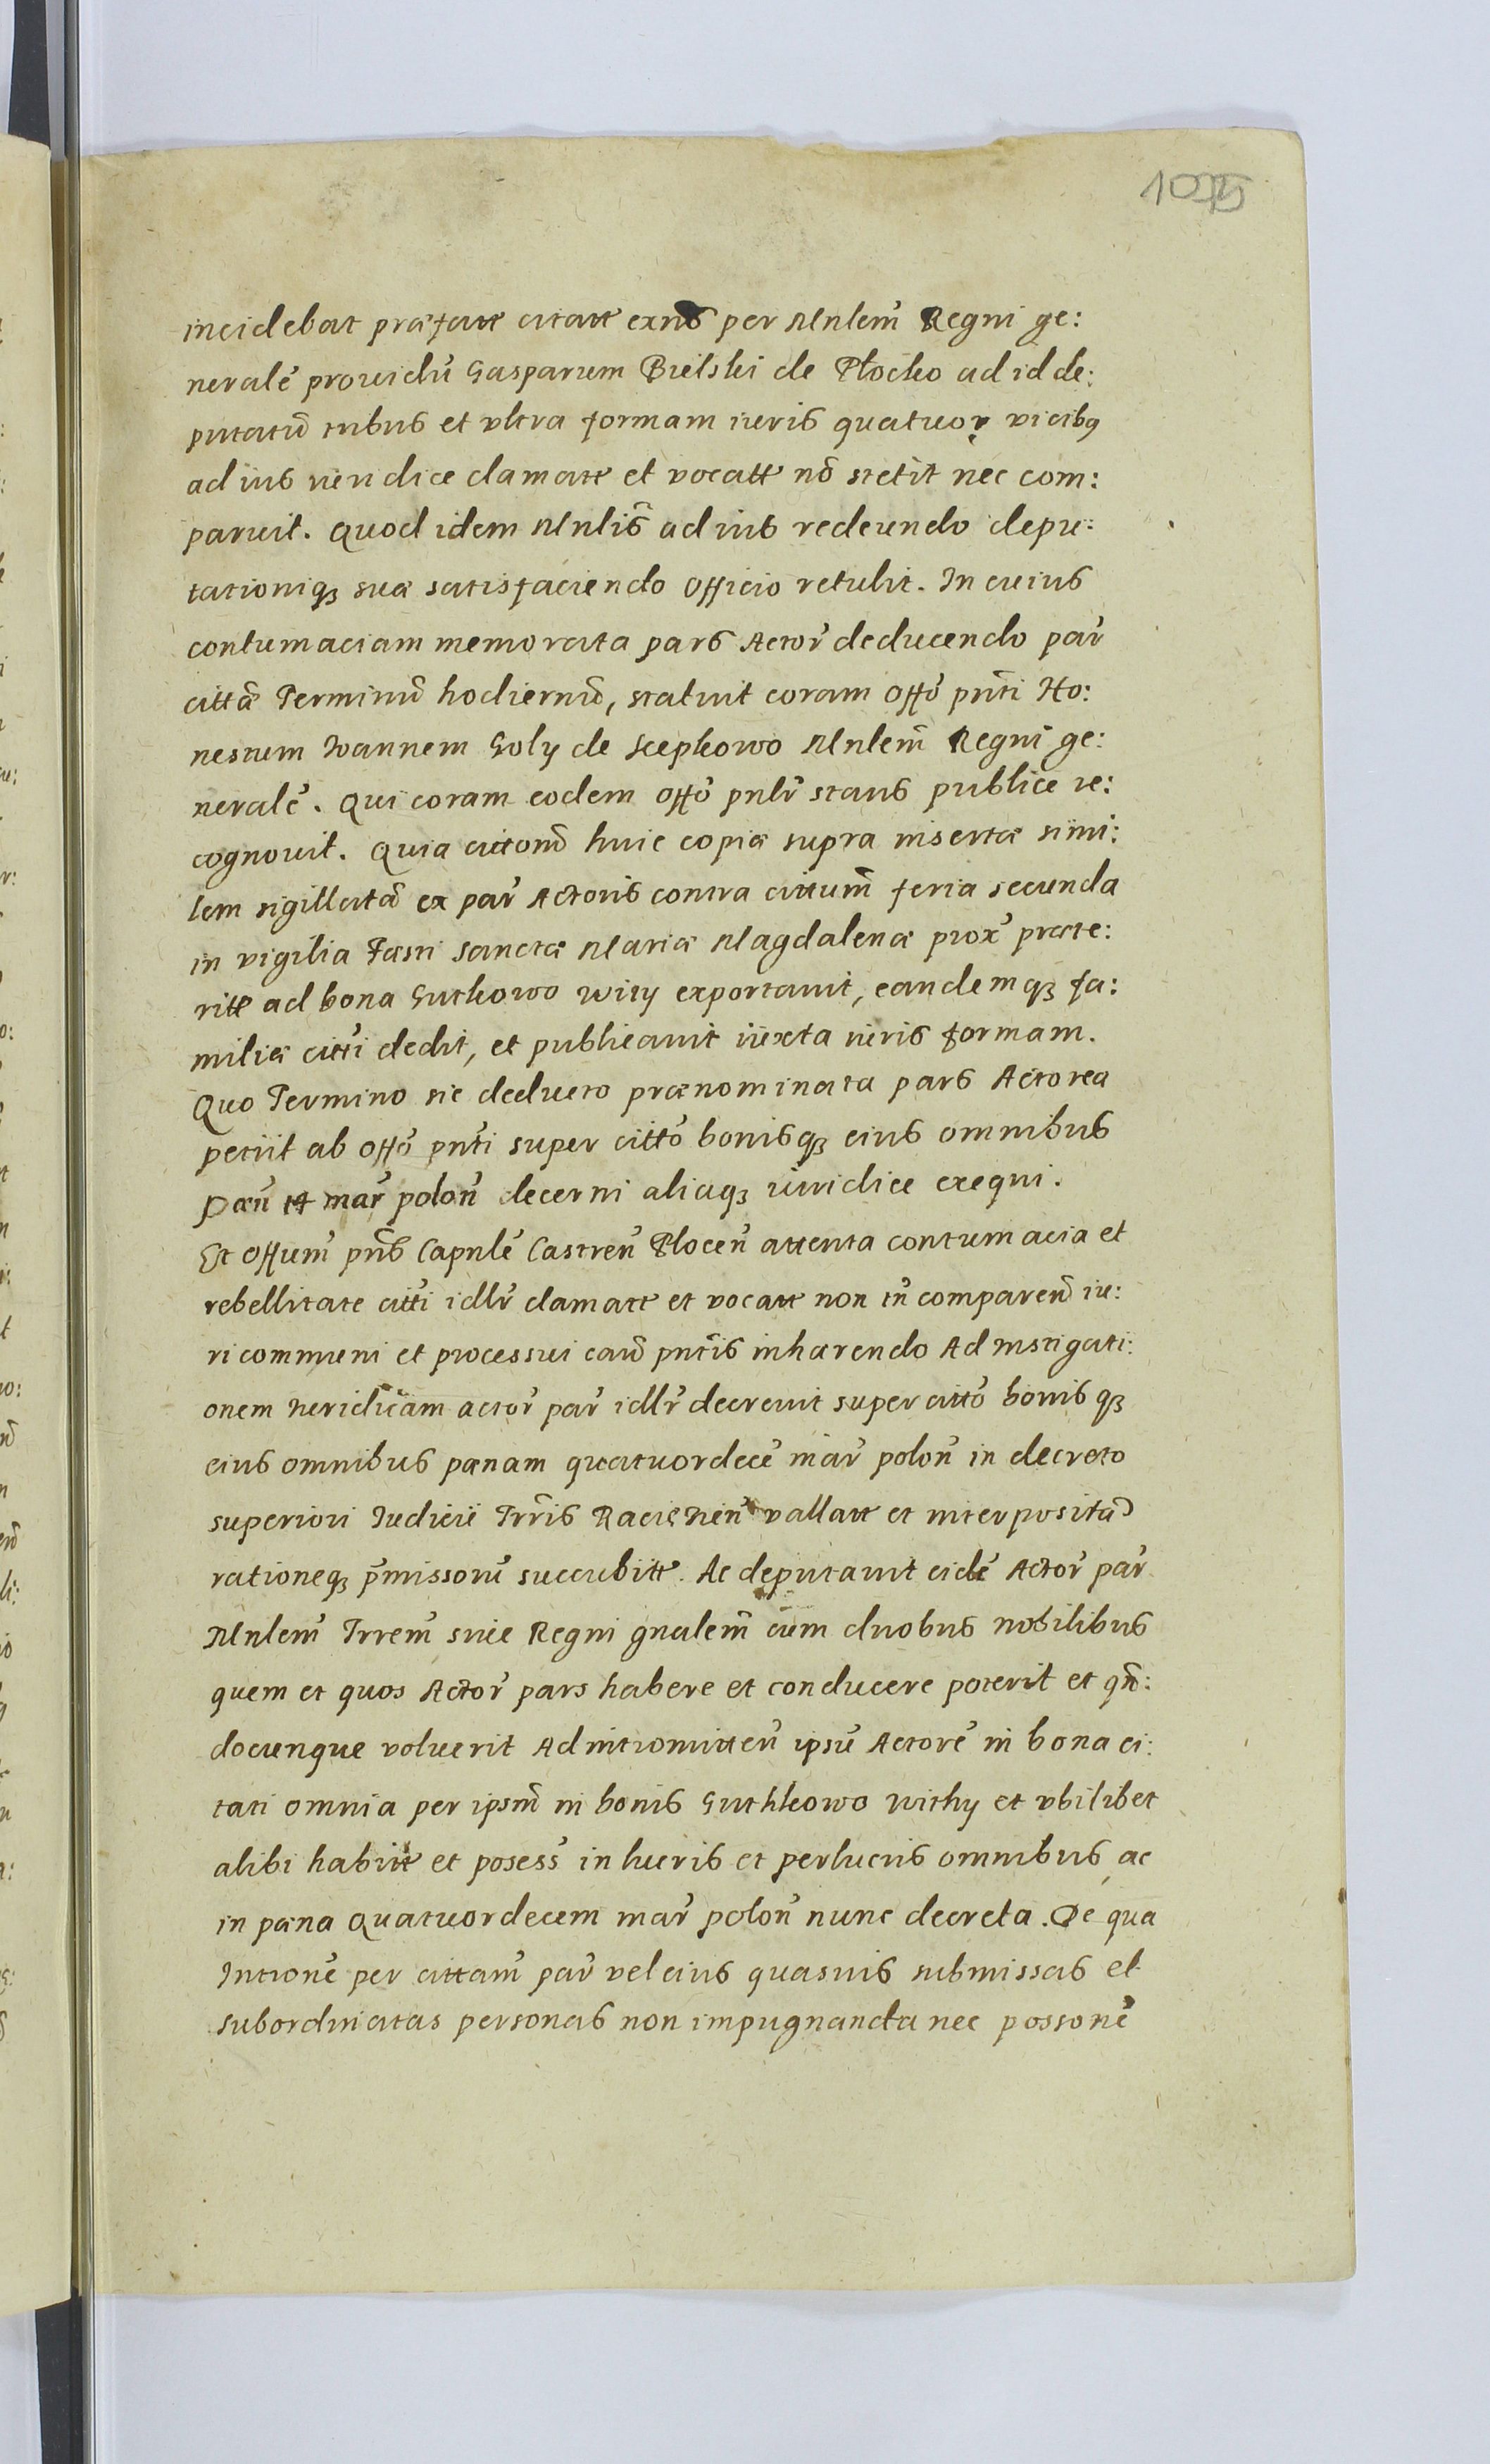 1095
incidebat præfatæ citatæ exñs per Mnlem̃ Regni ge:
neralẽ prouidũ Gasparum Bielski de Płocko ad id de:
putatũ tribus et vltra formam iuris quatuor vicibꝰ
ad ius iuridice clamatæ et vocatæ nõ stetit nec com:
paruit. Quod idem Mnlis̃ ad ius redeundo depu:
tationiqꝫ suæ satisfaciendo Officio retulit. In cuius
contumaciam memorata pars Actor̃ deducendo par̃
cittã Terminũ hodiernũ, statuit coram Offõ pnt̃i Ho:
nestum Ioannem Goly de Scepkowo Mnlem̃ Regni ge:
neralẽ. Qui coram eodem Offõ pnlr̃ stans publice re:
cognouit. Quia cittonẽ huic copiæ supra insertæ simi:
lem sigillatã ex par̃ Actoris contra cittum̃ feria secunda
in vigilia Festi Sanctæ Mariæ Magdalenæ prox̃ præte:
ritæ ad bona Gutkowo wity exportauit, eandemqꝫ fa:
miliæ citt̃i dedit, et publicauit iuxta iuris formam.
Quo Termino sic deducto prænominata pars Actorea
petiit ab Offõ pnt̃i super cittõ bonisqꝫ eius omnibus
pæñ 14 mar̃ poloñ decerni aliaqꝫ iuridice exequi.
Et Offum̃ pns̃ Capnlẽ Castreñ Ploceñ attenta contumacia et
rebellitate citt̃i idlr̃ clamatæ et vocatæ non tñ compareñ iu:
ri communi et processui caũ pntis̃ inhærendo Ad instigati:
onem iuridicam actor̃ par̃ idlr̃ decreuit super cittõ bonisqꝫ
eius omnibus pænam quatuordecẽ mar̃ poloñ in decreto
superiori Iudicii Trris̃ Raciążeñ vallatæ et interpositã
rationeqꝫ p̃missorũ succubitæ. Ac deputauit eidẽ Actor̃ par̃
Mnlem̃ Trrem̃ siue Regni gñalem̃ cum duobus nobilibus
quem et quos Actor̃ pars habere et conducere poterit et qñ:
docunque voluerit Ad intromitteñ ipsũ Actorẽ in bona ci:
tati omnia per ipsm̃ in bonis Guthkowo withy et vbilibet
alibi habitæ et posess̃ in lucris et perlucris omnibus ac
in pæna Quatuordecem mar̃ poloñ nunc decreta. De qua
Intrionẽ per cittam̃ par̃ vel eius quasuis submissas et
subordinatas personas non impugnanda nec possonẽ